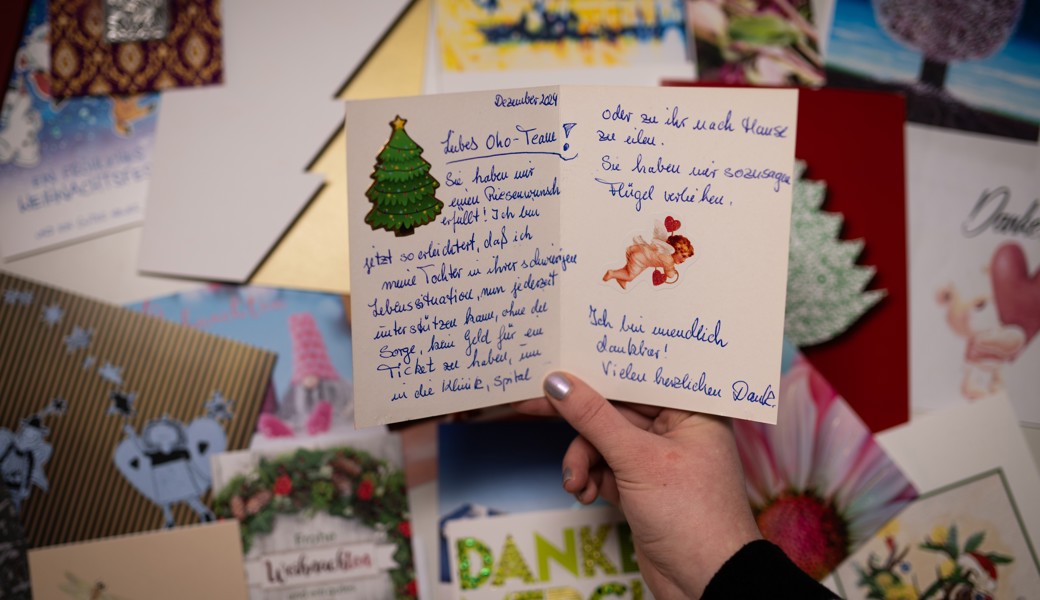 Dezember 2024
Liebes Öko-Team!
Sie haben mir
einen Riesenwunsch
erfüllt! Ich bin
jetzt so erleichtert, daß ich
meine Tochter in ihrer schwierigen
Lebenssituation, nun jederzeit
unterstützen kann, ohne die
Sorge, kein Geld für ein
Ticket zu haben, um
in die Klinik, Spital
oder zu ihr nach Hause
zu eilen.
Sie haben mir sozusagen
Flügel verliehen.
Ich bin unendlich
dankbar!
Vielen herzlichen Dank.
Danke
Frohe
Weihnachten
DANKE